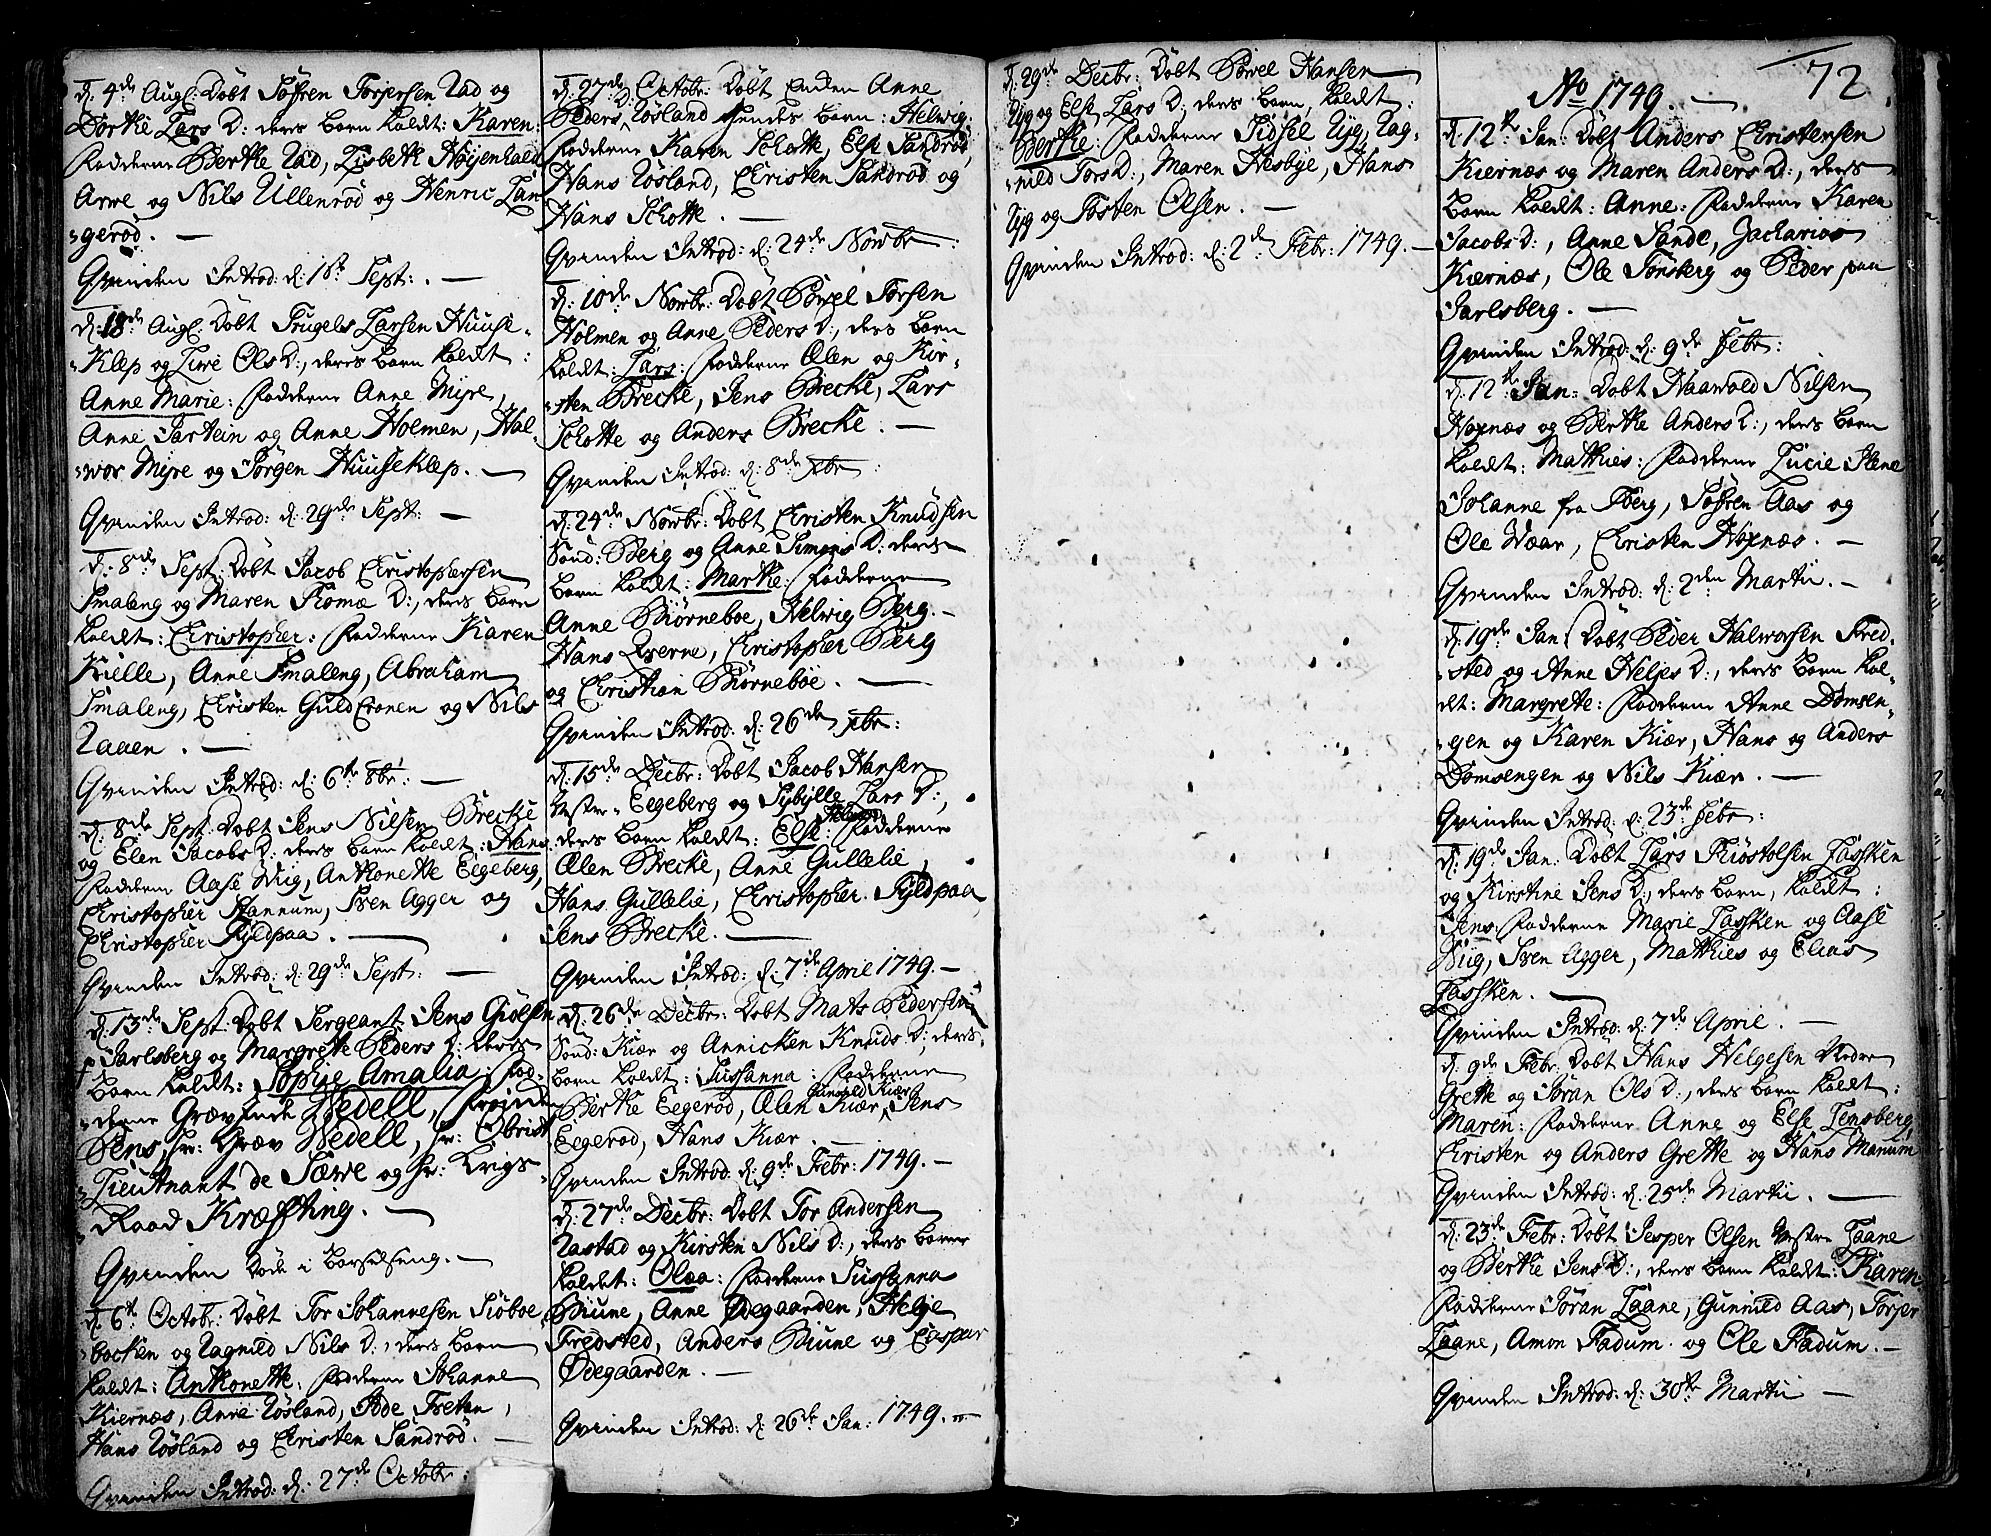 d: 4de Aug: Døbt Søfren Torjersen Rad og
Dorthe Lars D: ders barn kaldt: Karen:
Fadderne Berthe Rad, Lisbeth Høyenhald
Arwe og Nils Ullenrød og Henric Lan
gerød. —
Qvinden Introd: d: 16de Sept: —
d: 18de Aug: Døbt Trugels Larsen Huuse-
Klep og Live Ols D:, ders barn kaldt:
Anne Marie: Fadderne Anne Myre,
Anne Jartein og Anne Holmen, Hal
vor Myre og Jørgen Huuseklep. —
Qvinden Introd: d: 29de Sept: —
d: 8de Sept: Døbt Jacob Christophersen
Smaleng og Maren Thomæ D:, ders barn
kaldt: Christopher: Fadderne Karen
Kielle, Anne Smaleng, Abraham
Smaleng, Christen Guldcronen og Nils
Raaen. —
Qvinden Introd: d: 6te 8br: —
d: 8de Sept: Døbt Jens Nilsen Brecke
og Elen Jacobs D: ders barn kaldt: Hans
Fadderne Aase Wiig, Anthonette Eegeberg,
Christopher Hannum, Sven Agger og
Christopher Fyldpaa. —
Qvinden Introd: d: 29de Sept: —
d: 13de Sept: Døbt Sergeant Jens Giølsen
Jarlsberg og Margrethe Peders D: ders
barn kaldt: Sophie Amalia: Fad-
derne Grævinde Wedell, Frøiden
Sens, Hr: Græv Wedell, Hr: Obrist
Lieutnant de Sæwe og Hr: Krigs-
Raad Kræfting. —
Qvinden døde i barselseng. —
d: 6te Octobr: Døbt Tor Johannesen Siøboe
backen og Ragnild Nils D:, ders barn
kaldt: Anthonette. Fadderne Johanne
Kiernæs, Anne Røsland, Ode Tretan,
Hans Røsland og Christen Sandrød. —
Qvinden Introd: d: 27de Octobr:
d: 27de Octobr: Døbt Enden Anne
Peders D: Røsland hendes barn: Helwig:
Fadderne Karen Schotte, Else Sandrød,
Hans Røsland, Christen Sandrød og
Hans Schotte. —
Qvinden Introd: d: 24de Novbr:
d: 10de Novbr: Døbt Powel Torsen
Holmen og Anne Peders D:, ders barn
kaldt: Lars: Fadderne Ælen og Kir-
sten Brecke, Jens Brecke, Lars
Schotte og Anders Brecke. —
Qvinden Introd: d: 8de Xbr:
d: 24de Novbr: Døbt Christen Knudsen
Sond: Berg og Anne Simons D: ders
barn kaldt: Marthe: Fadderne
Anne Biørneboe, Helwig Berg. —
Hans Qverne, Christopher Berg
og Christian Biørneboe. —
Qvinden Introd: d: 26de Xbr:
d: 15de Decbr: Døbt Jacob Hansen
Vestre Eegeberg og Sybylle Lars D:,
ders barn kaldt: Else: Fadderne
Ælen Brecke, Anne Gullelie,
Hans Gullelie, Christopher Fyldpaa
Jens Brecke. —
Qvinden Introd: d: 7de April 1749. —
d: 26de Decbr: Døbt Mats Pedersen
Sond: Kiær og Annicken Knuds D:, ders
barn kaldt: Sussanna: Fadderne
Gunnild Kiær
Berthe Eegerød, Ælen Kiær, Jens
Eegerød, Hans Kiær. —
Qvinden Introd: d: 9de Febr: 1749. —
d: 27de Decbr: Døbt Tor Andersen
Rastad og Kirsten Nils D:, ders barn
kaldet: Olaa: Fadderne Sussanna
Biune, Anne Ødegaarden, Helje
Fredsted, Anders Biune og Casper
Ødegaarden. —
Qvinden Introd: d: 26de Jan: 1749. —
d: 29de Decbr: Døbt Powel Hansen
Ryg og Else Lars D: ders barn, kaldt:
Berthe: Fadderne Sidsel Ryg, Rag-
nild Tors D:, Maren Hesbye, Hans
Ryg og Tosten Olsen. —
Qvinden Introd: d: 2de Febr: 1749. —
72
No 1749. —
d: 12te Jan: Døbt Anders Christensen
Kiernæs og Maren Anders D:, ders
barn kaldt: Anne: Fadderne Karen
Jacobs D:, Anne Sande, Zacharias
Kiernæs, Ole Tønsberg og Peder paa
Jarlsberg. —
Qvinden Introd: d: 9de Febr:
d: 12te Jan: Døbt Haarvold Nilsen
Hoxnæs og Berthe Anders D:, ders barn
kaldt: Mathies: Fadderne Lucie Slene
Johanne fra Berg, Søfren Aas og
Ole Waar, Christen Hoxnæs. —
Qvinden Introd: d: 2den Martii. —
d: 19de Jan: Døbt Peder Halvorsen Fred-
sted og Anne Heljes D:, ders barn kal-
dt: Margrete: Fadderne Anne Domsen-
gen og Karen Kiær, Hans og Anders
Domsengen og Nils Kiær. —
Qvinden Introd: d: 23de Febr:
d: 19de Jan: Døbt Lars Thiostolsen Fassken
og Kirstine Jens D:, ders barn, kaldt:
Jens: Fadderne Marie Fassken og Aase
Wiig, Sven Agger, Mathies og Elias
Fassken. —
Qvinden Introd: d: 7de April. —
d: 9de Febr: Døbt Hans Helgesen Nedre
Grette og Søran Ols D:, ders barn kaldt:
Maren: Fadderne Anne og Else Lensberg
Christen og Anders Grette og Hans Manum
Qvinden Introd: d: 25de Martii. —
d: 23de Febr: Døbt Jesper Olsen Vestre Taane
og Berthe Jens D:, ders barn kaldt: Karen
Fadderne Søran Taane, Gunnild Aas, Torjer
Taane, Amon Fadum og Ole Fadum. —
Qvinden Introd: d: 30te Martii —